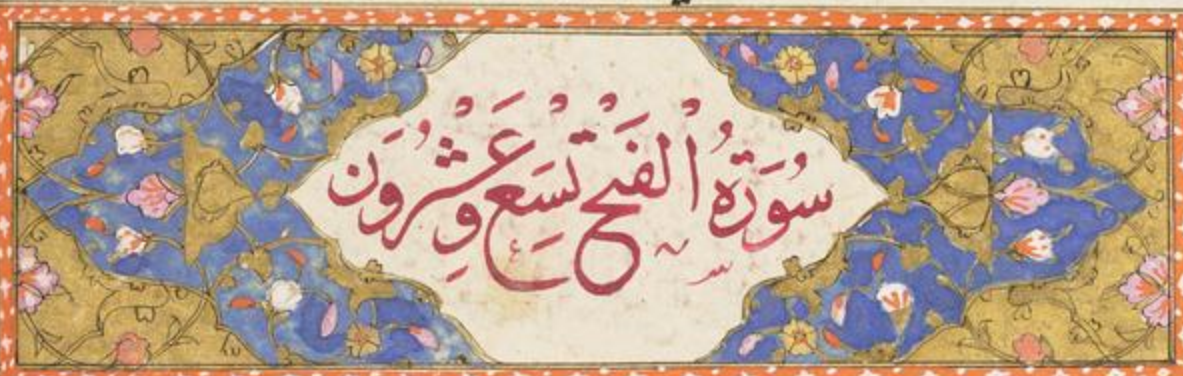 سُورَةُ الْفَتْحِ تِسَع وعَشْرُون